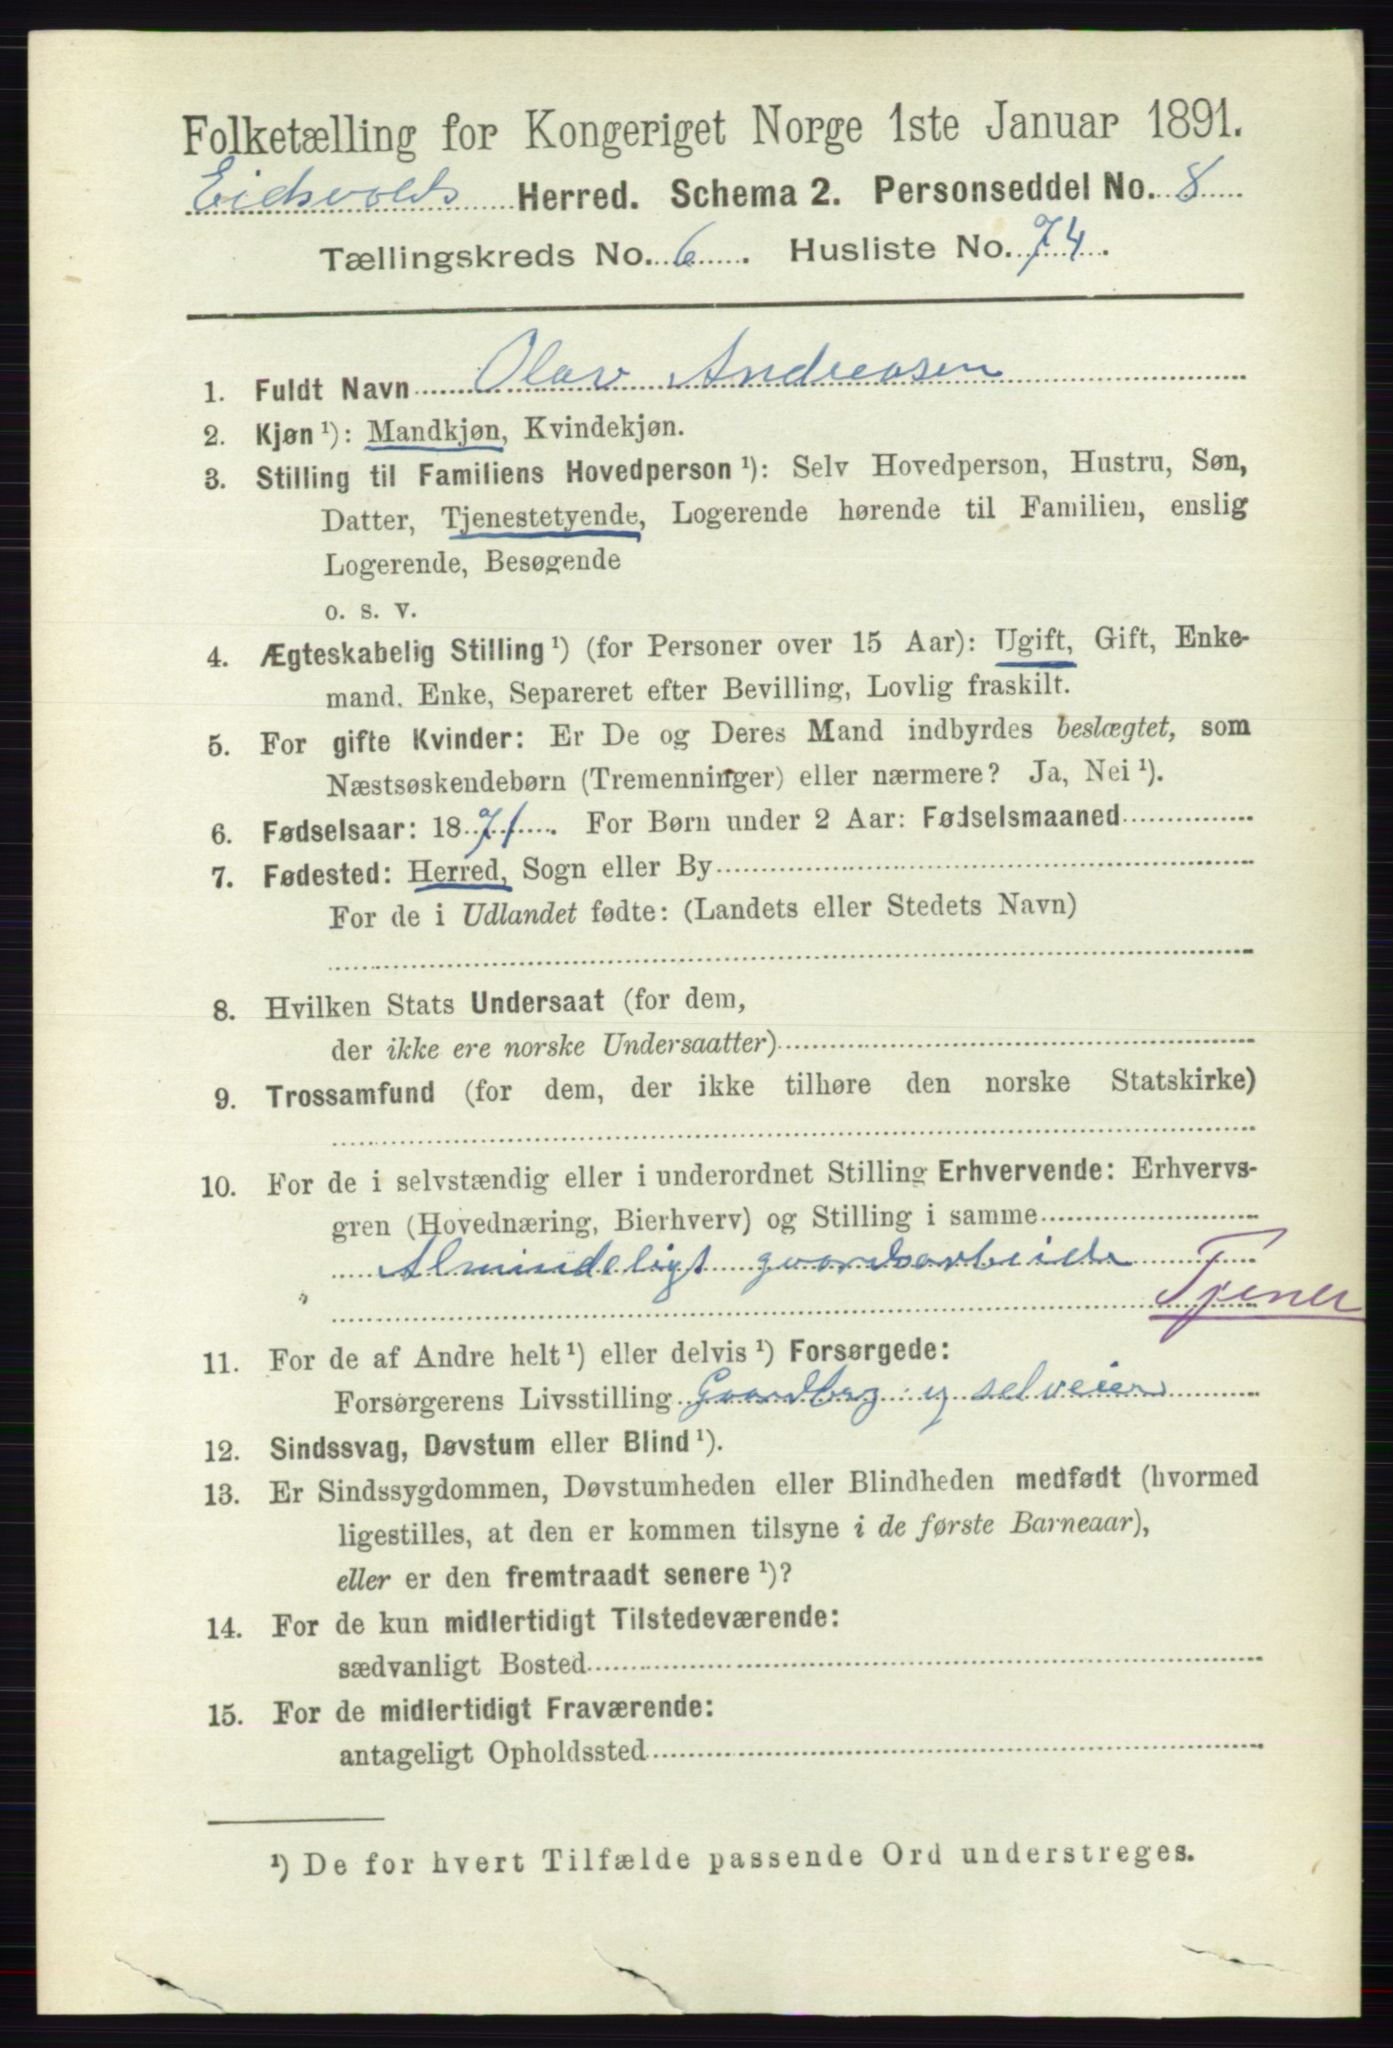 Folketælling for Kongeriget Norge 1ste Januar 1891.
Eidsvolds Herred. Schema 2. Personseddel No. 8
Tællingskreds No. 6. Husliste No. 74.
1. Fuldt Navn Olav Andreasen
2. Kjøn ¹): Mandkjøn, Kvindekjøn.
3. Stilling til Familiens Hovedperson ¹): Selv Hovedperson, Hustru, Søn,
Datter, Tjenestetyende, Logerende hørende til Familien, enslig
Logerende, Besøgende
o. s. v.
4. Ægteskabelig Stilling ¹) (for Personer over 15 Aar): Ugift, Gift, Enke-
mand. Enke, Separeret efter Bevilling, Lovlig fraskilt.
5. For gifte Kvinder: Er De og Deres Mand indbyrdes beslægtet, som
Næstsøskendebørn (Tremenninger) eller nærmere? Ja, Nei ¹).
6. Fødselsaar: 1871. For Børn under 2 Aar: Fødselsmaaned
7. Fødested: Herred, Sogn eller By
For de i Udlandet fødte: (Landets eller Stedets Navn)
8. Hvilken Stats Undersaat (for dem,
der ikke ere norske Undersaatter)
9. Trossamfund (for dem, der ikke tilhøre den norske Statskirke)
10. For de i selvstændig eller i underordnet Stilling Erhvervende: Erhvervs-
gren (Hovednæring, Bierhverv) og Stilling i samme
Almindeligt gaardsarbeide
Tjener
11. For de af Andre helt ¹) eller delvis ¹) Forsørgede:
Forsørgerens Livsstilling Gaardbrg: og selveier
12. Sindssvag, Døvstum eller Blind ¹).
13. Er Sindssygdommen, Døvstumheden eller Blindheden medfødt (hvormed
ligestilles, at den er kommen tilsyne i de første Barneaar),
eller er den fremtraadt senere ¹)?
14. For de kun midlertidigt Tilstedeværende:
sædvanligt Bosted
15. For de midlertidigt Fraværende:
antageligt Opholdssted
¹) De for hvert Tilfælde passende Ord understreges.